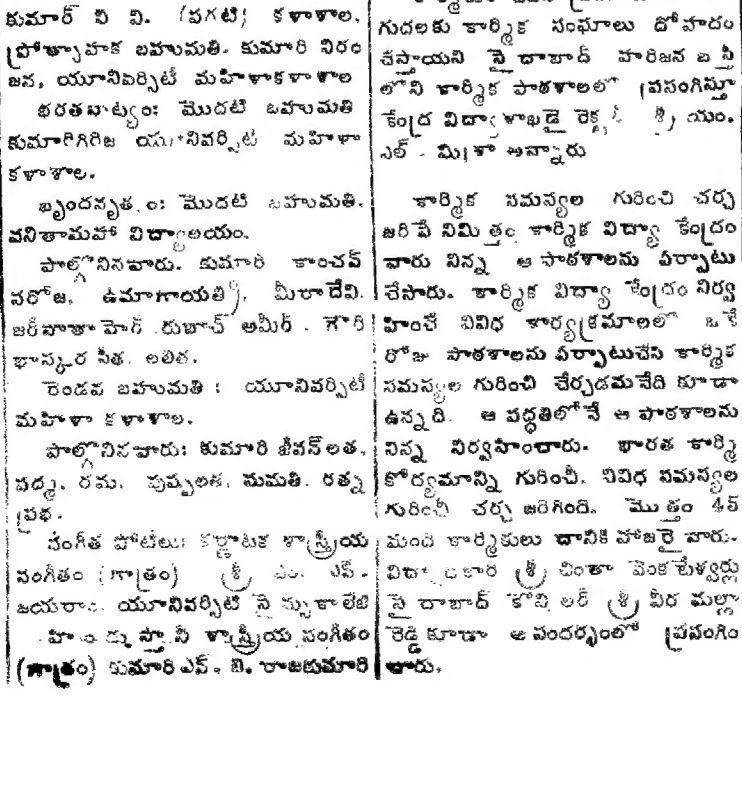 కుమార్ వి వి. (పగటి) కళాశాల,
ప్రోత్సాహక బహుమతి. కుమారి నిరం
జన, యూనివర్సిటీ మహిళాకళాశాల
భరతనాట్యం: మొదటి బహుమతి
కుమారిగిరిజ యూనివర్సిటీ మహిళా
కళాశాల.
బృందనృత్యం: మొదటి బహుమతి,
వనితామహా విద్యాలయం.
పాల్గొనినవారు. కుమారి కాంచన్
సరోజ, ఉమాగాయత్రి, మీరాదేవి.
అమీర్. గౌరి
భాస్కర సీత, లలిత.
రెండవ బహుమతి : యూనివర్సిటీ
మహిళా కళాశాల.
పాల్గొనినవారు: కుమారి జీవన్‌లత,
పద్మ, రమ, పుష్పలత, సుమతి, రత్న
ప్రభ.
సంగీత పోటీలు: కర్ణాటక శాస్త్రీయ
సంగీతం (గాత్రం) శ్రీ ఎం. ఎస్.
జయరాం యూనివర్సిటీ సైన్సుకాలేజి
హిందుస్తానీ శాస్త్రీయ సంగీతం
(గాత్రం) కుమారి ఎస్. బి. రాజకుమారి
గుదలకు కార్మిక సంఘాలు దోహదం
చేస్తాయని సైదాబాద్ హరిజన బస్తీ
లోని కార్మిక పాఠశాలలో ప్రసంగిస్తూ
కేంద్ర విద్యాశాఖ డైరెక్టర్ శ్రీ యం.
ఎల్. మిశ్రా అన్నారు
కార్మిక సమస్యల గురించి చర్చ
జరిపే నిమిత్తం కార్మిక విద్యా కేంద్రం
వారు నిన్న ఆ పాఠశాలను ఏర్పాటు
చేసారు. కార్మిక విద్యా కేంద్రం నిర్వ
హించే వివిధ కార్యక్రమాలలో ఒకే
రోజు పాఠశాలను ఏర్పాటుచేసి కార్మిక
సమస్యల గురించి చేర్చడమనేది కూడా
ఉన్నది. ఆ పద్ధతిలోనే ఆ పాఠశాలను
నిన్న నిర్వహించారు. భారత కార్మి
కోద్యమాన్ని గురించీ, వివిధ సమస్యల
గురించీ చర్చ జరిగింది. మొత్తం 45
మంది కార్మికులు దానికి హాజరైనారు.
విద్యాధికారి శ్రీ చింతా వెంకటేశ్వర్లు
సైదాబాద్ కౌన్సిలర్ శ్రీ వీర మల్లా
రెడ్డి కూడా ఆ సందర్భంలో ప్రసంగిం
చారు.